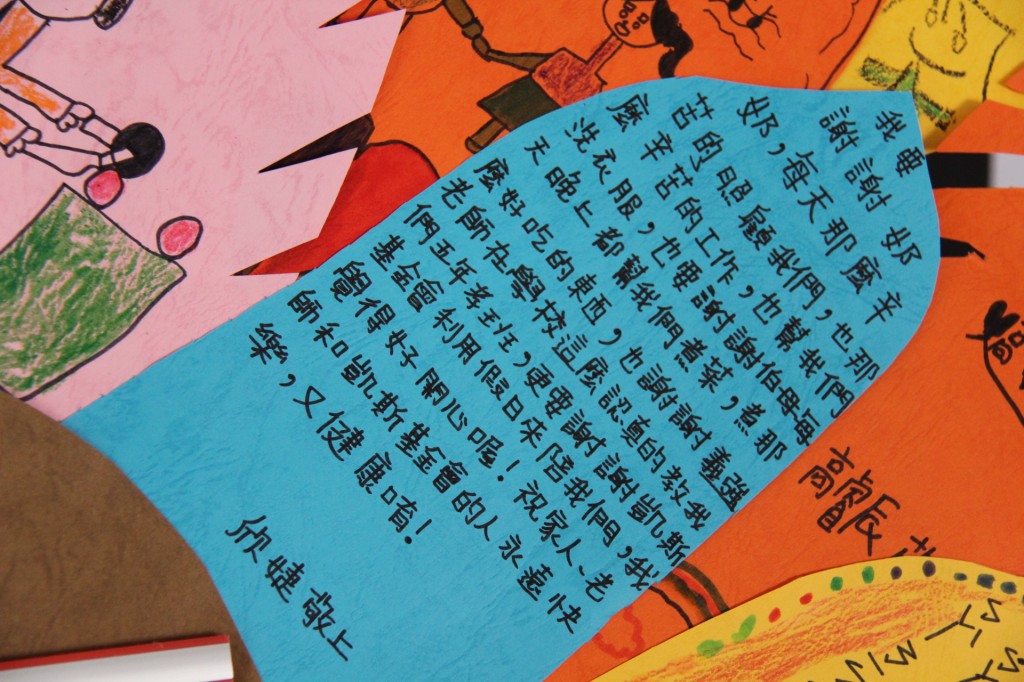 我要
謝謝奶
奶，每天那麼辛
苦的照顧我們，也那
麼辛苦的工作，也幫我們
洗衣服，也要謝謝伯母每
天晚上都幫我們煮菜，煮那
麼好吃的東西，也謝謝義強
老師在學校這麼認真的教我
們五年孝班，更要謝謝凱斯
基金會利用假日來陪我們，我
覺得好開心喔！祝家人、老
師和凱斯基金會的人永遠快
樂，又健康唷！
欣婕敬上